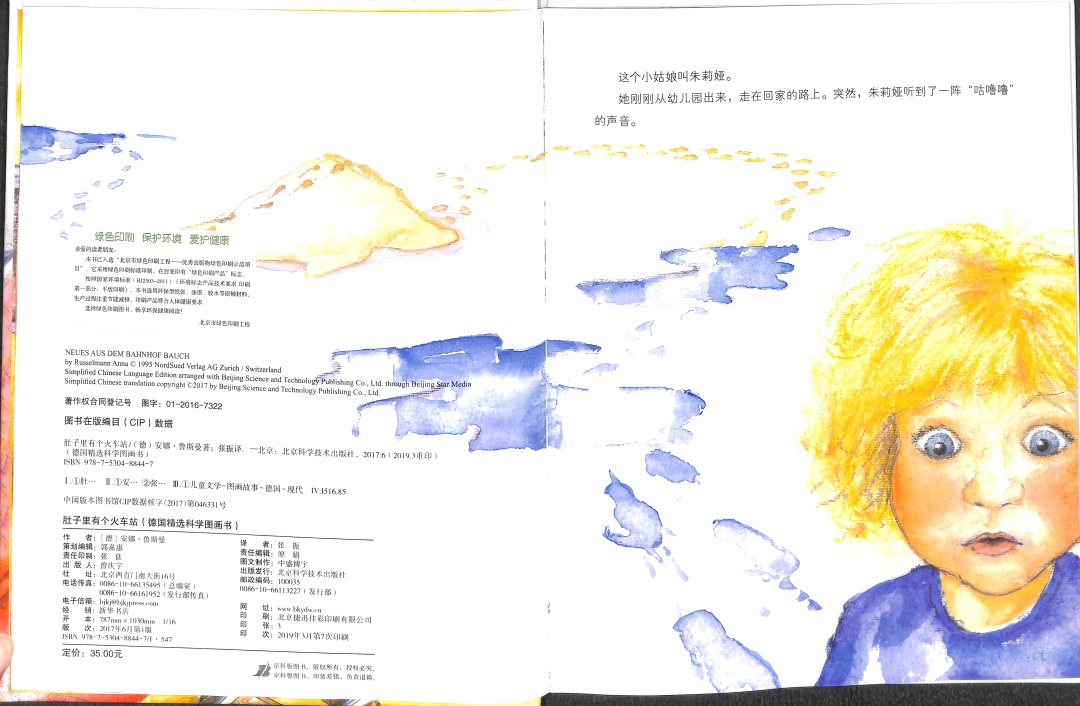 绿色印刷 保护环境 爱护健康
亲爱的读者朋友：
本书已入选“北京市绿色印刷工程——优秀出版物绿色印刷示范项
目”。它采用绿色印刷标准印制，在封底印有“绿色印刷产品”标志。
按照国家环境标准（HJ2503-2011）《环境标志产品技术要求 印刷
第一部分：平版印刷》，本书选用环保型纸张、油墨、胶水等原辅材料，
生产过程注重节能减排，印刷产品符合人体健康要求。
选择绿色印刷图书，畅享环保健康阅读！
北京市绿色印刷工程
NEUES AUS DEM BAHNHOF BAUCH
by Russelmann Anna © 1995 NordSued Verlag AG Zurich / Switzerland
Simplified Chinese Language Edition arranged with Beijing Science and Technology Publishing Co., Ltd. through Beijing Star Media
Simplified Chinese translation copyright ©2017 by Beijing Science and Technology Publishing Co., Ltd.
著作权合同登记号 图字：01-2016-7322
图书在版编目（CIP）数据
肚子里有个火车站/（德）安娜·鲁斯曼著；张振译. —北京：北京科学技术出版社，2017.6（2019.3重印）
（德国精选科学图画书）
ISBN 978-7-5304-8844-7
Ⅰ.①肚… Ⅱ.①安… ②张… Ⅲ.①儿童文学-图画故事-德国-现代 Ⅳ.I516.85
中国版本图书馆CIP数据核字(2017)第046331号
肚子里有个火车站（德国精选科学图画书）
作 者：〔德〕安娜·鲁斯曼
策划编辑：郭嘉惠
责任印制：张 良
出 版 人：曾庆宇
社 址：北京西直门南大街16号
电话传真：0086-10-66135495（总编室）
0086-10-66161952（发行部传真）
电子信箱：bjkj@bjkjpress.com
经 销：新华书店
开 本：787mm×1030mm 1/16
版 次：2017年6月第1版
ISBN 978-7-5304-8844-7/I·547
译 者：张 振
责任编辑：原 娟
图文制作：中盛博宇
出版发行：北京科学技术出版社
邮政编码：100035
0086-10-66113227（发行部）
网 址：www.bkydw.cn
印 刷：北京捷迅佳彩印刷有限公司
印 张：3
印 次：2019年3月第7次印刷
定价：35.00元
京科版图书，版权所有，侵权必究。
京科版图书，印装差错，负责退换。
这个小姑娘叫朱莉娅。
她刚刚从幼儿园出来，走在回家的路上。突然，朱莉娅听到了一阵“咕噜噜”
的声音。